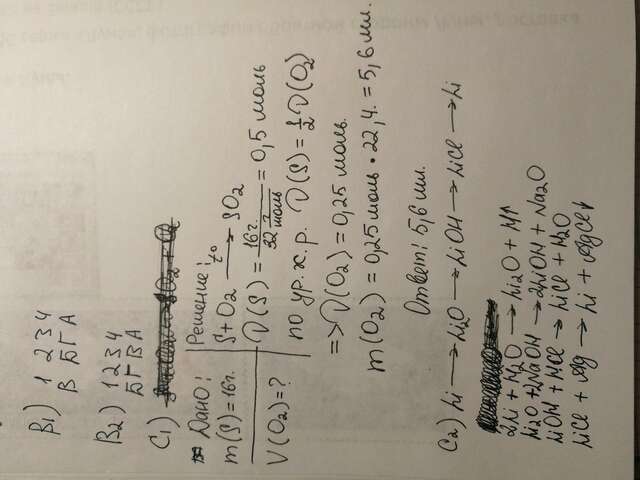 B1) 1 2 3 4
В Б Г А
B2) 1 2 3 4
Б Г В А
C1)
Дано:
m(S)=16г.
V(O2)=?
Решение:
S+O2 t° → SO2
ν(S)= 16г. / 32 г/моль = 0,5 моль
по ур.х.р. ν(S)=1/2 ν(O2)
=> ν(O2)=0,25 моль.
m(O2)=0,25 моль • 22,4.=5,6 мл.
Ответ: 5,6 мл.
C2) Li → Li2O → LiOH → LiCl → Li
2Li + H2O → Li2O + H↑
Li2O + 2NaOH → 2LiOH + Na2O
LiOH + HCl → LiCl + H2O
LiCl + → Li +